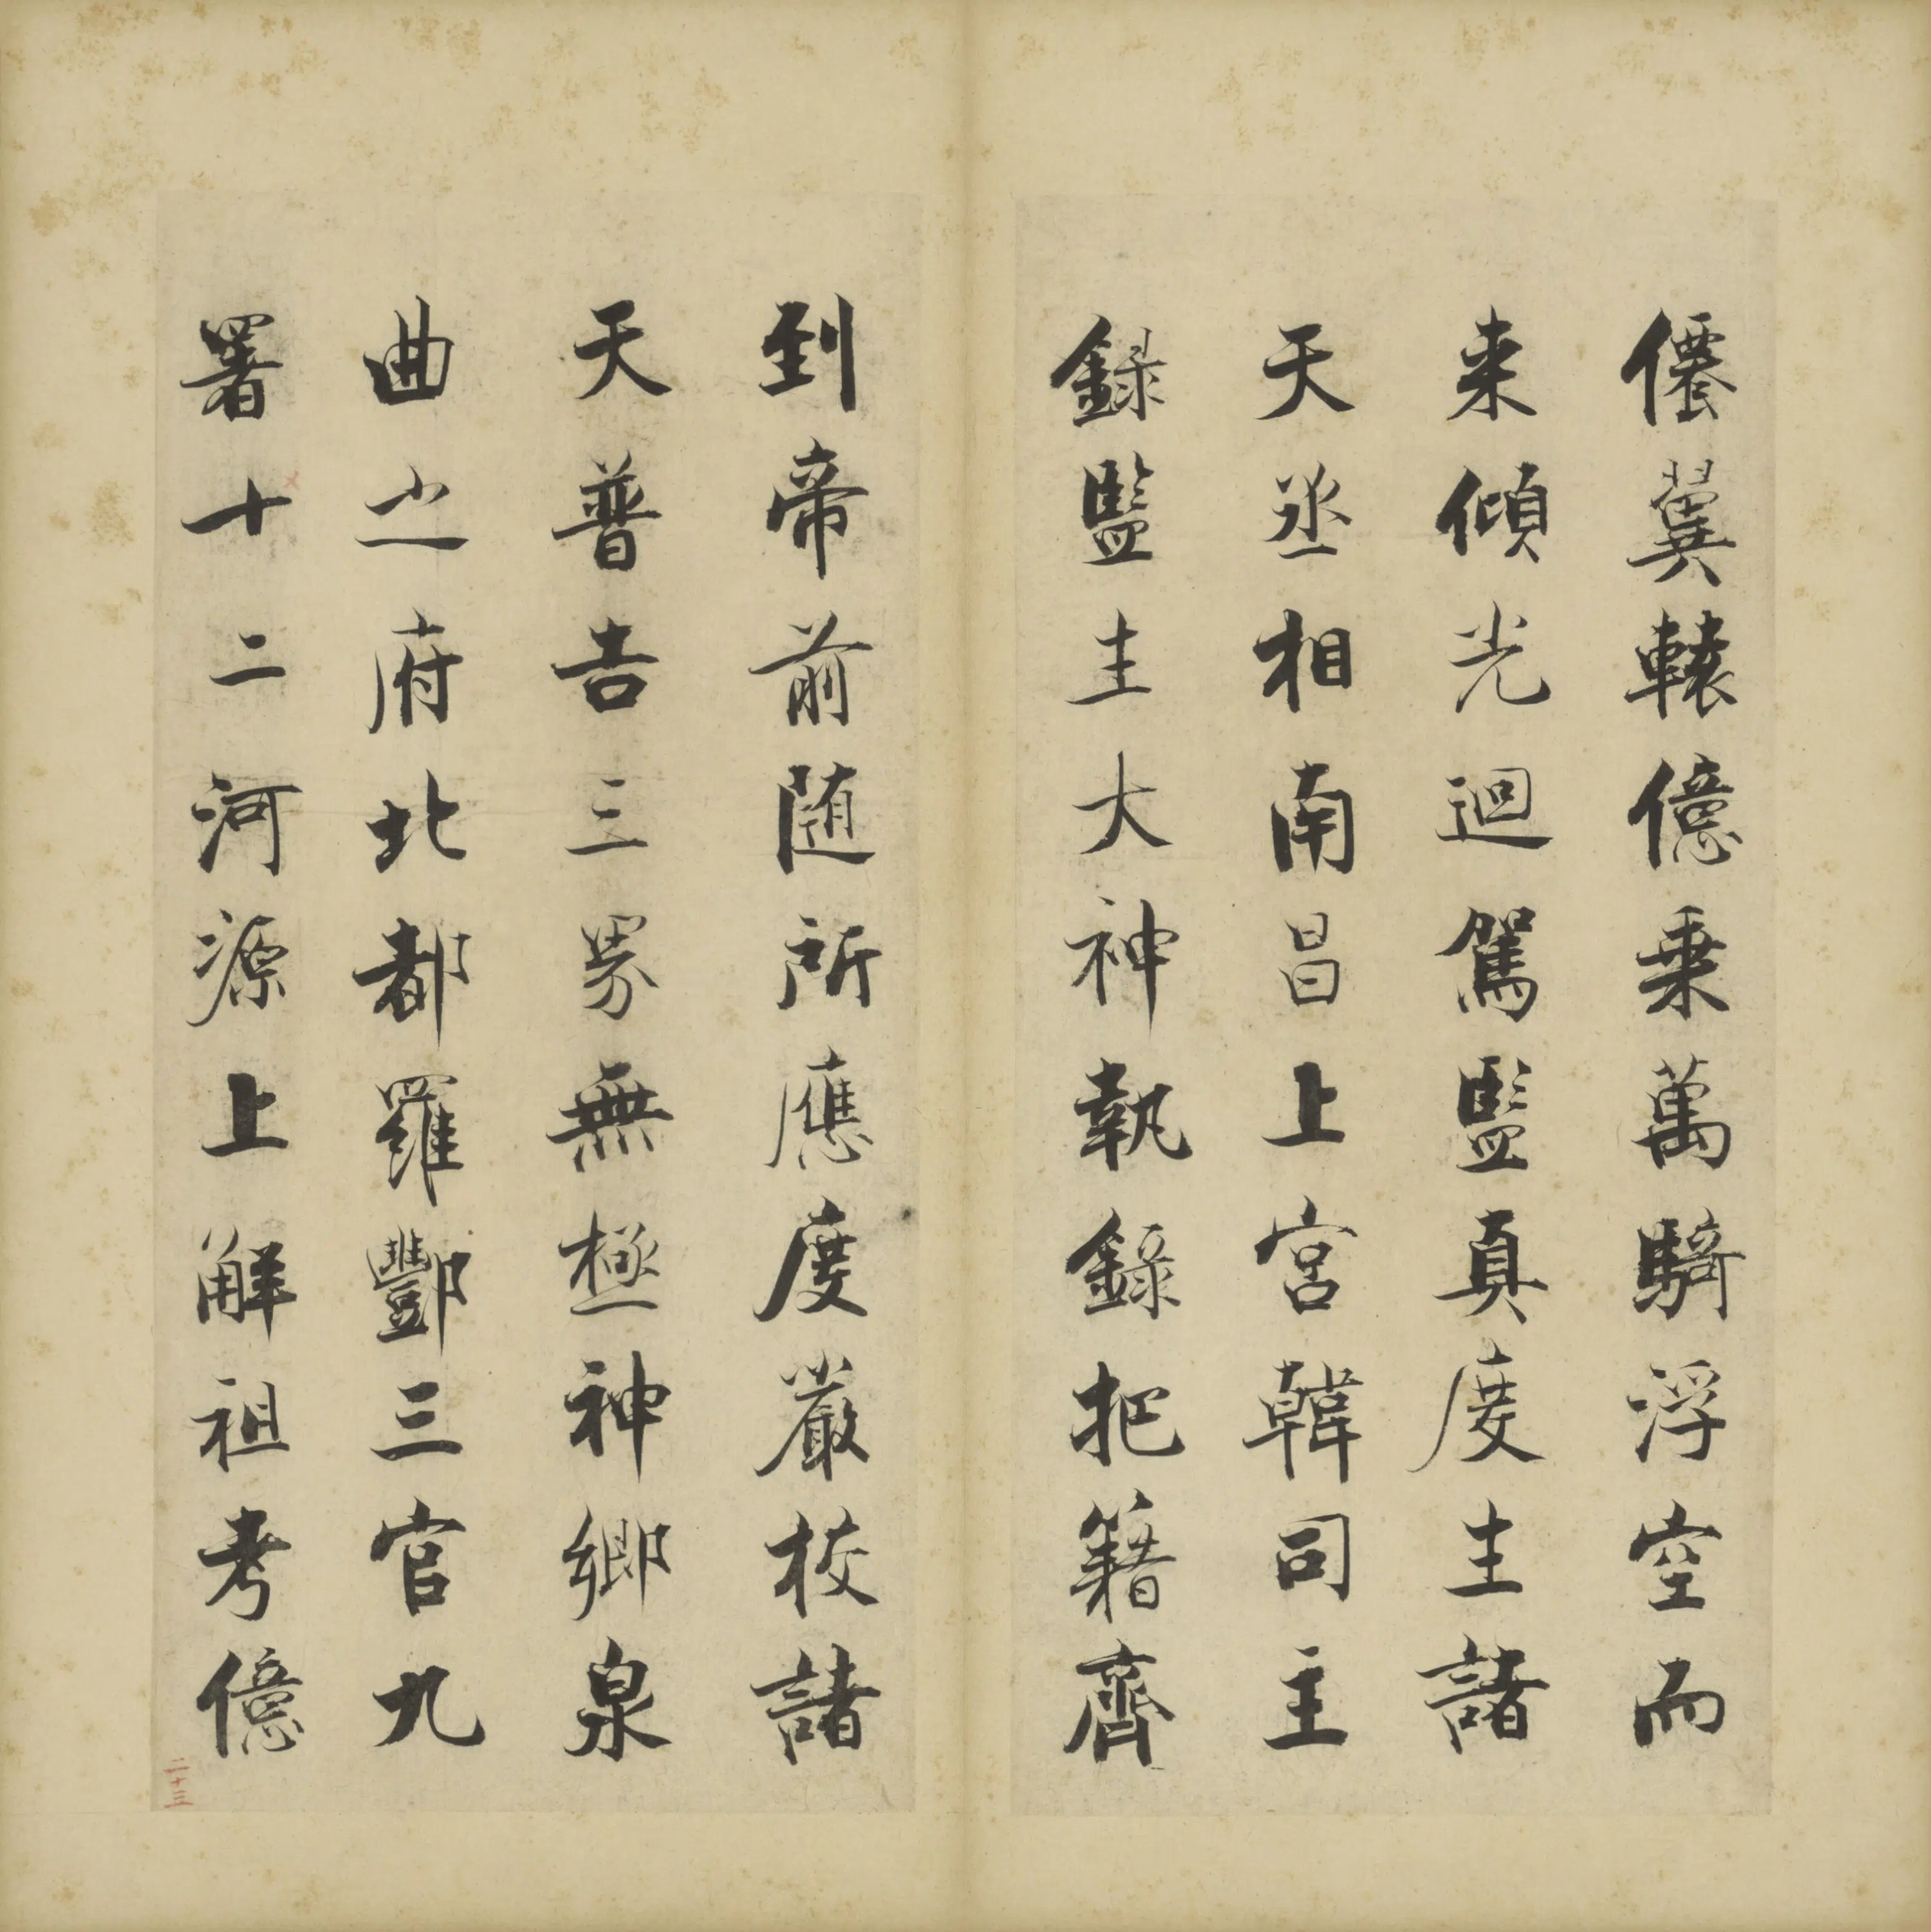 僊翼轅億乗萬騎浮空而
来傾光迴駕監真度生諸
天丞相南昌上宮韓司主
録監生大神執録把籍齊
到帝前随所應度嚴校諸
天普告三界無極神鄉泉
曲之府北都羅酆三官九
署十二河源上解祖考億
二十三